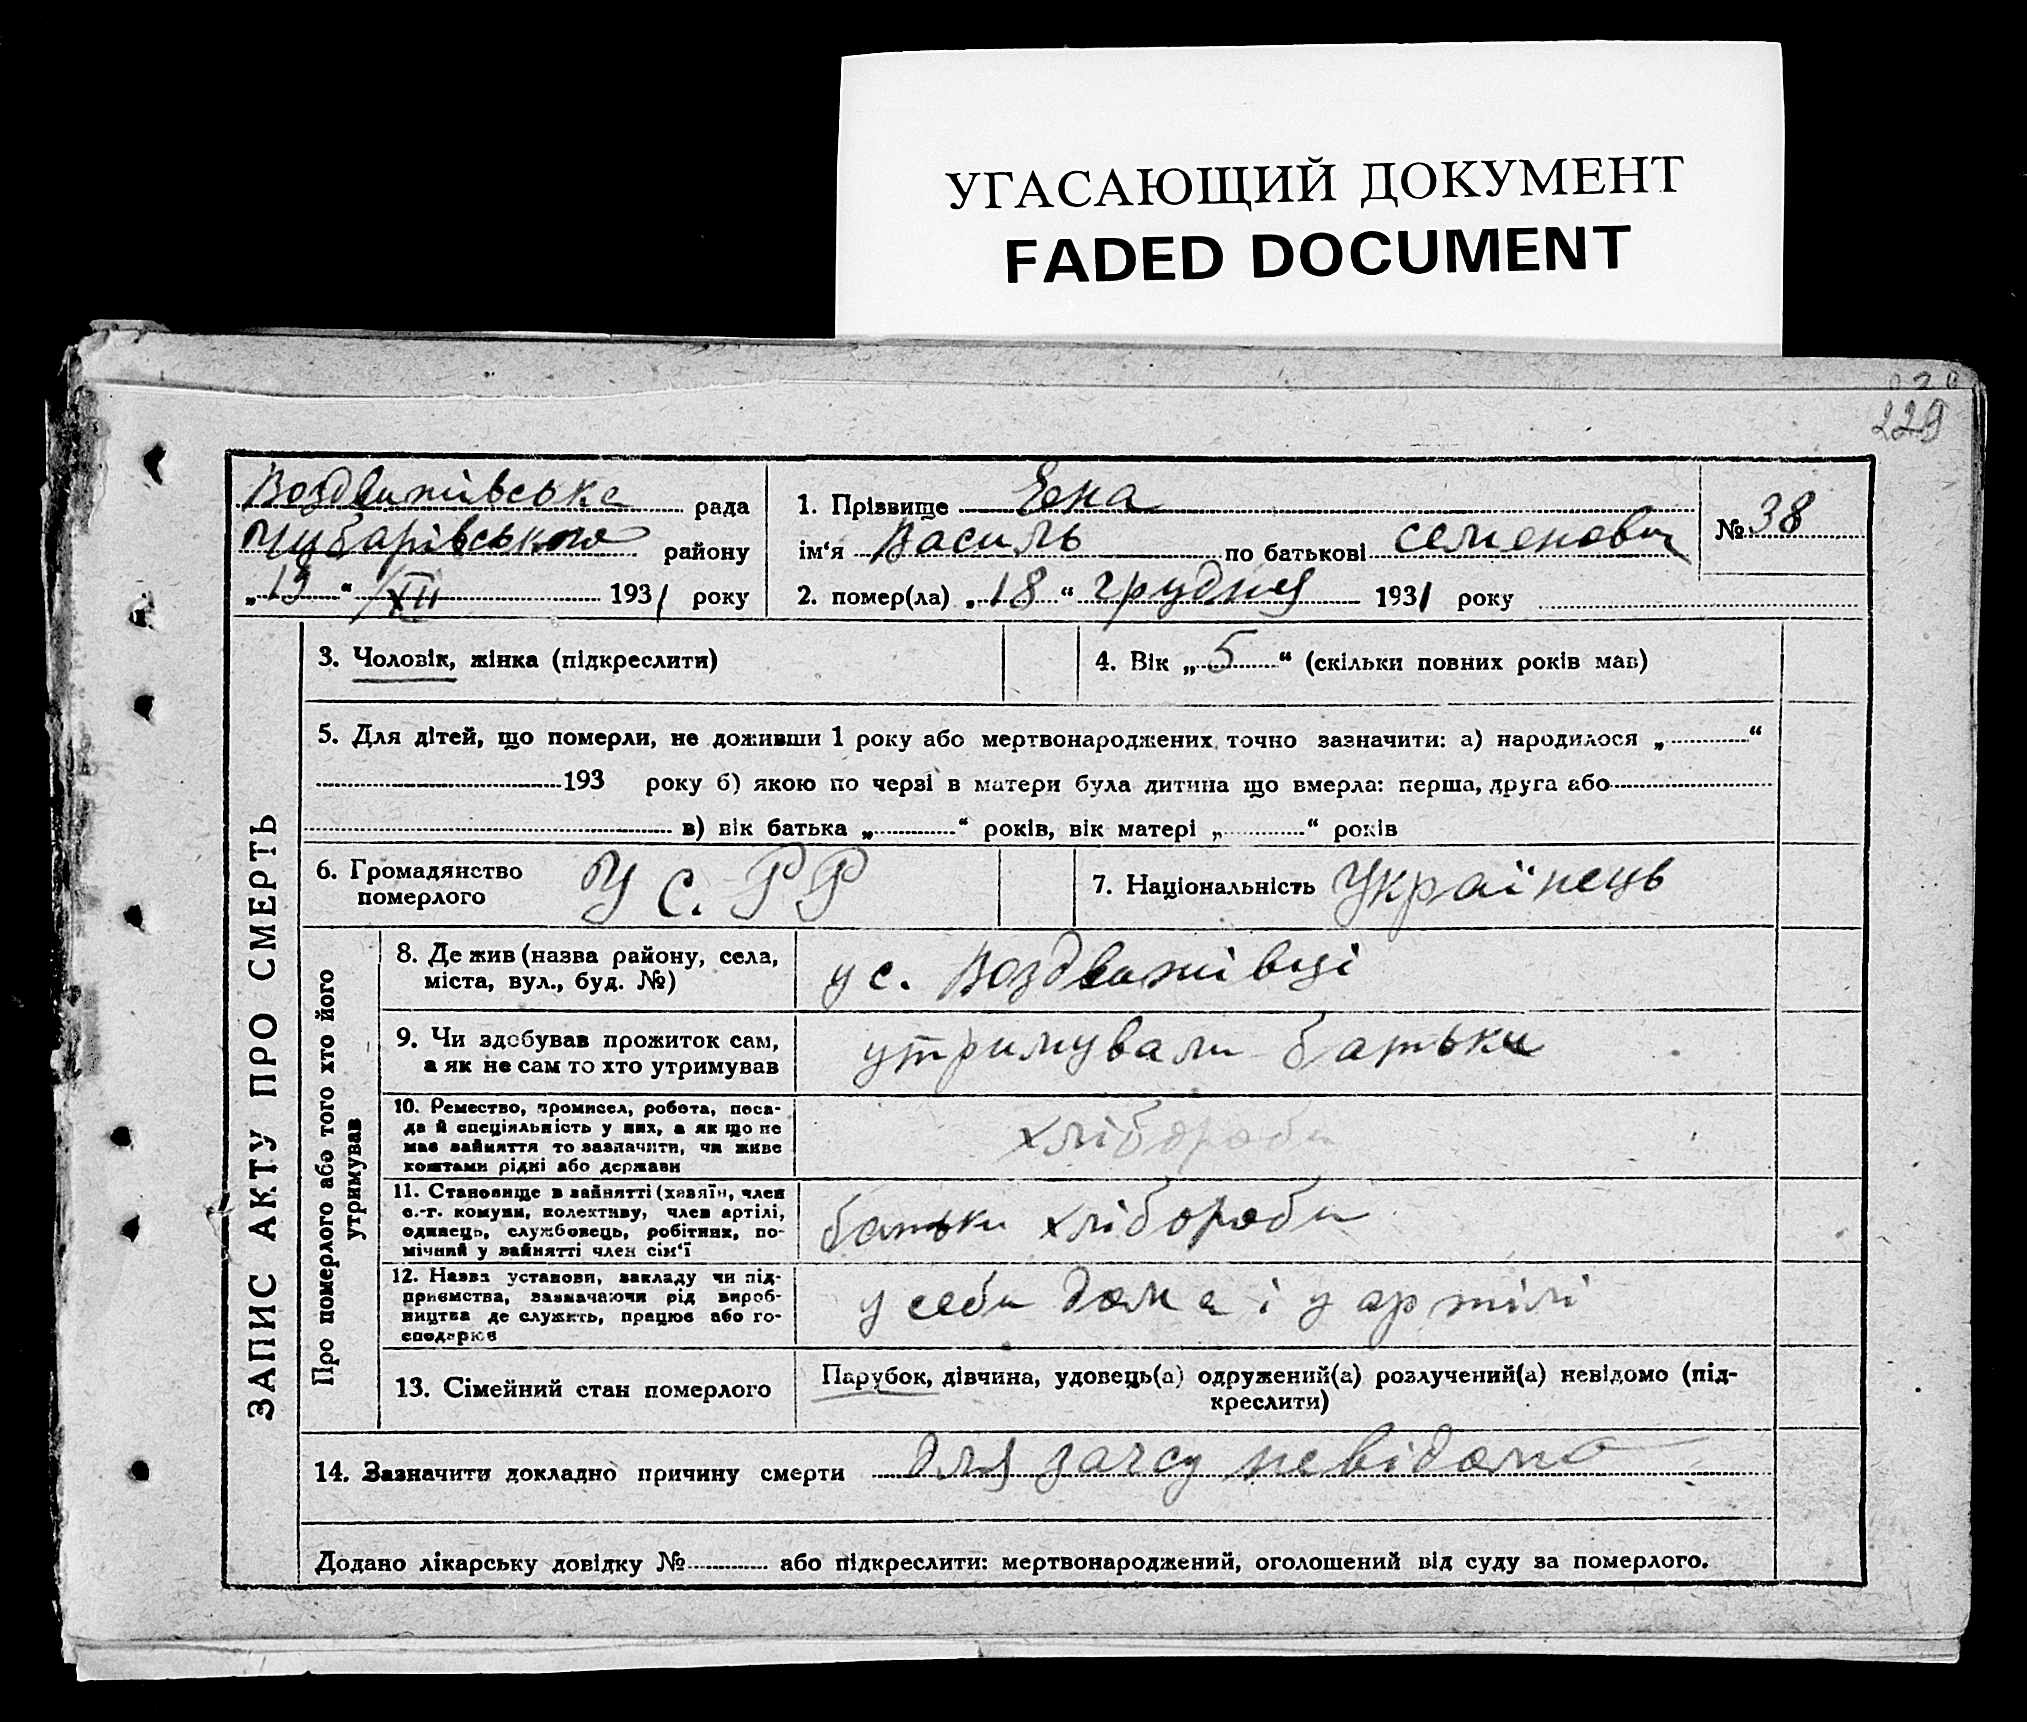 УГАСАЮЩИЙ ДОКУМЕНТ
FADED DOCUMENT
229
Воздвижівська рада
Чубарівського району
„19“ /XII 1931 року
1. Прізвище
ім‘я Василь по батькові Семенович
2. помер(ла) „18“ грудня 1931 року
№ 38
ЗАПИС АКТУ ПРО СМЕРТЬ
3. Чоловік, жінка (підкреслити)
4. Вік „5“ (скільки повних років мав)
5. Для дітей, що померли, не доживши 1 року або мертвонароджених точно зазначити: а) народилося „ “
193 року б) якою по черзі в матери була дитина що вмерла: перша, друга або
в) вік батька „ “ років, вік матері „ “ років
6. Громадянство
померлого
УС.РР
7. Національність Українець
Про померлого або того хто його
утримував
8. Де жив (назва району, села,
міста, вул., буд. №)
у с. Воздвижівці
9. Чи здобував прожиток сам,
а як не сам то хто утримував
утримували батьки
10. Ремество, промисел, робота, поса-
да й спеціяльність у них, а як що не
має зайняття то зазначити, чи живе
коштами рідні або держави
хлібороби
11. Становище в зайнятті (хазяїн, член
с.-г. комуни, колективу, член артілі,
одинець, службовець, робітник, по-
мічний у зайнятті член сім‘ї
батьки хлібороби
12. Назва установи, закладу чи під-
приємства, зазначаючи рід вироб-
ництва де служить, працює або го-
сподарює
у себе дома і у артілі
13. Сімейний стан померлого
Парубок, дівчина, удовець(а) одружений(а) розлучений(а) невідомо (під-
креслити)
14. Зазначити докладно причину смерти для загсу невідомо
Додано лікарську довідку № або підкреслити: мертвонароджений, оголошений від суду за померлого.